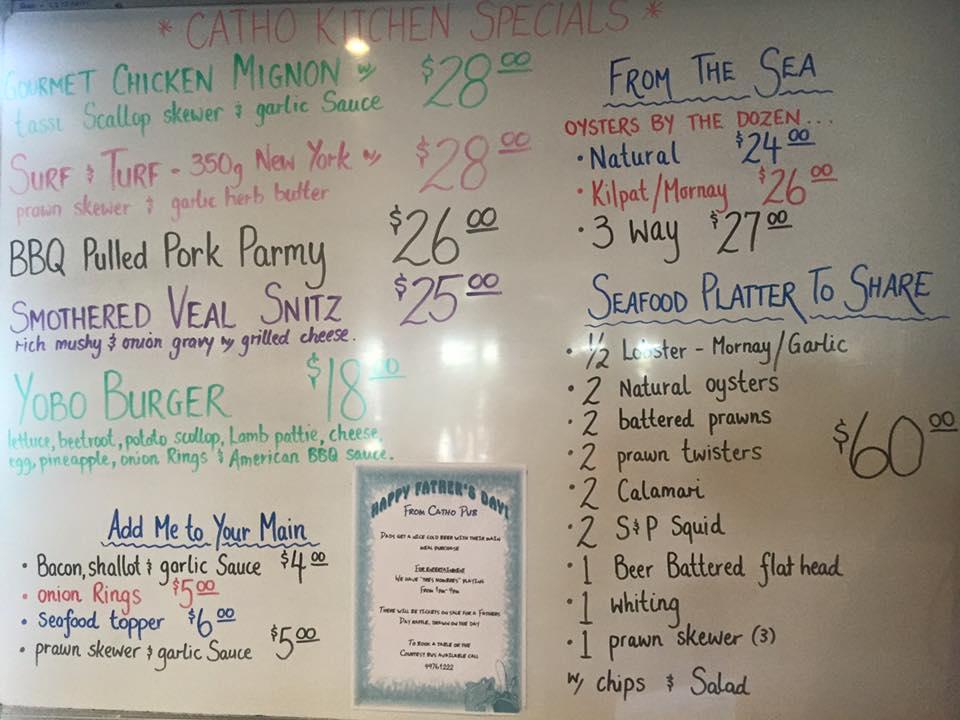 * CATHO KITCHEN SPECIALS *
GOURMET CHICKEN MIGNON w/ $28.00
tassi Scallop skewer & garlic Sauce
SURF & TURF - 350g NEW YORK w/ $28.00
prawn skewer & garlic herb butter
BBQ Pulled Pork Parmy $26.00
SMOTHERED VEAL SNITZ $25.00
rich mushy & onion gravy w/ grilled cheese.
YOBO BURGER $18.00
lettuce, beetroot, potato scollop, Lamb pattie, cheese,
egg, pineapple, onion Rings & American BBQ sauce.
Add Me to Your Main
• Bacon, shallot & garlic Sauce $4.00
• onion Rings $5.00
• Seafood topper $6.00
• prawn skewer & garlic Sauce $5.00
HAPPY FATHER'S DAY!
FROM CATHO PUB
DADS GET A NICE COLD BEER WITH THEIR MAIN
MEAL PURCHASE
FOR ENTERTAINMENT
WE HAVE "TRES HOMBRES" PLAYING
FROM 1PM-4PM
THERE WILL BE TICKETS ON SALE FOR A FATHERS
DAY RAFFLE, DRAWN ON THE DAY
TO BOOK A TABLE OR THE
COURTESY BUS AVAILABLE CALL
49761222
FROM THE SEA
OYSTERS BY THE DOZEN...
• Natural $24.00
• Kilpat/Mornay $26.00
• 3 Way $27.00
SEAFOOD PLATTER TO SHARE
• 1/2 Lobster - Mornay/Garlic
• 2 Natural oysters
• 2 battered prawns
$60.00
• 2 prawn twisters
• 2 Calamari
• 2 S&P Squid
• 1 Beer Battered flathead
• 1 whiting
• 1 prawn skewer (3)
w/ chips & Salad